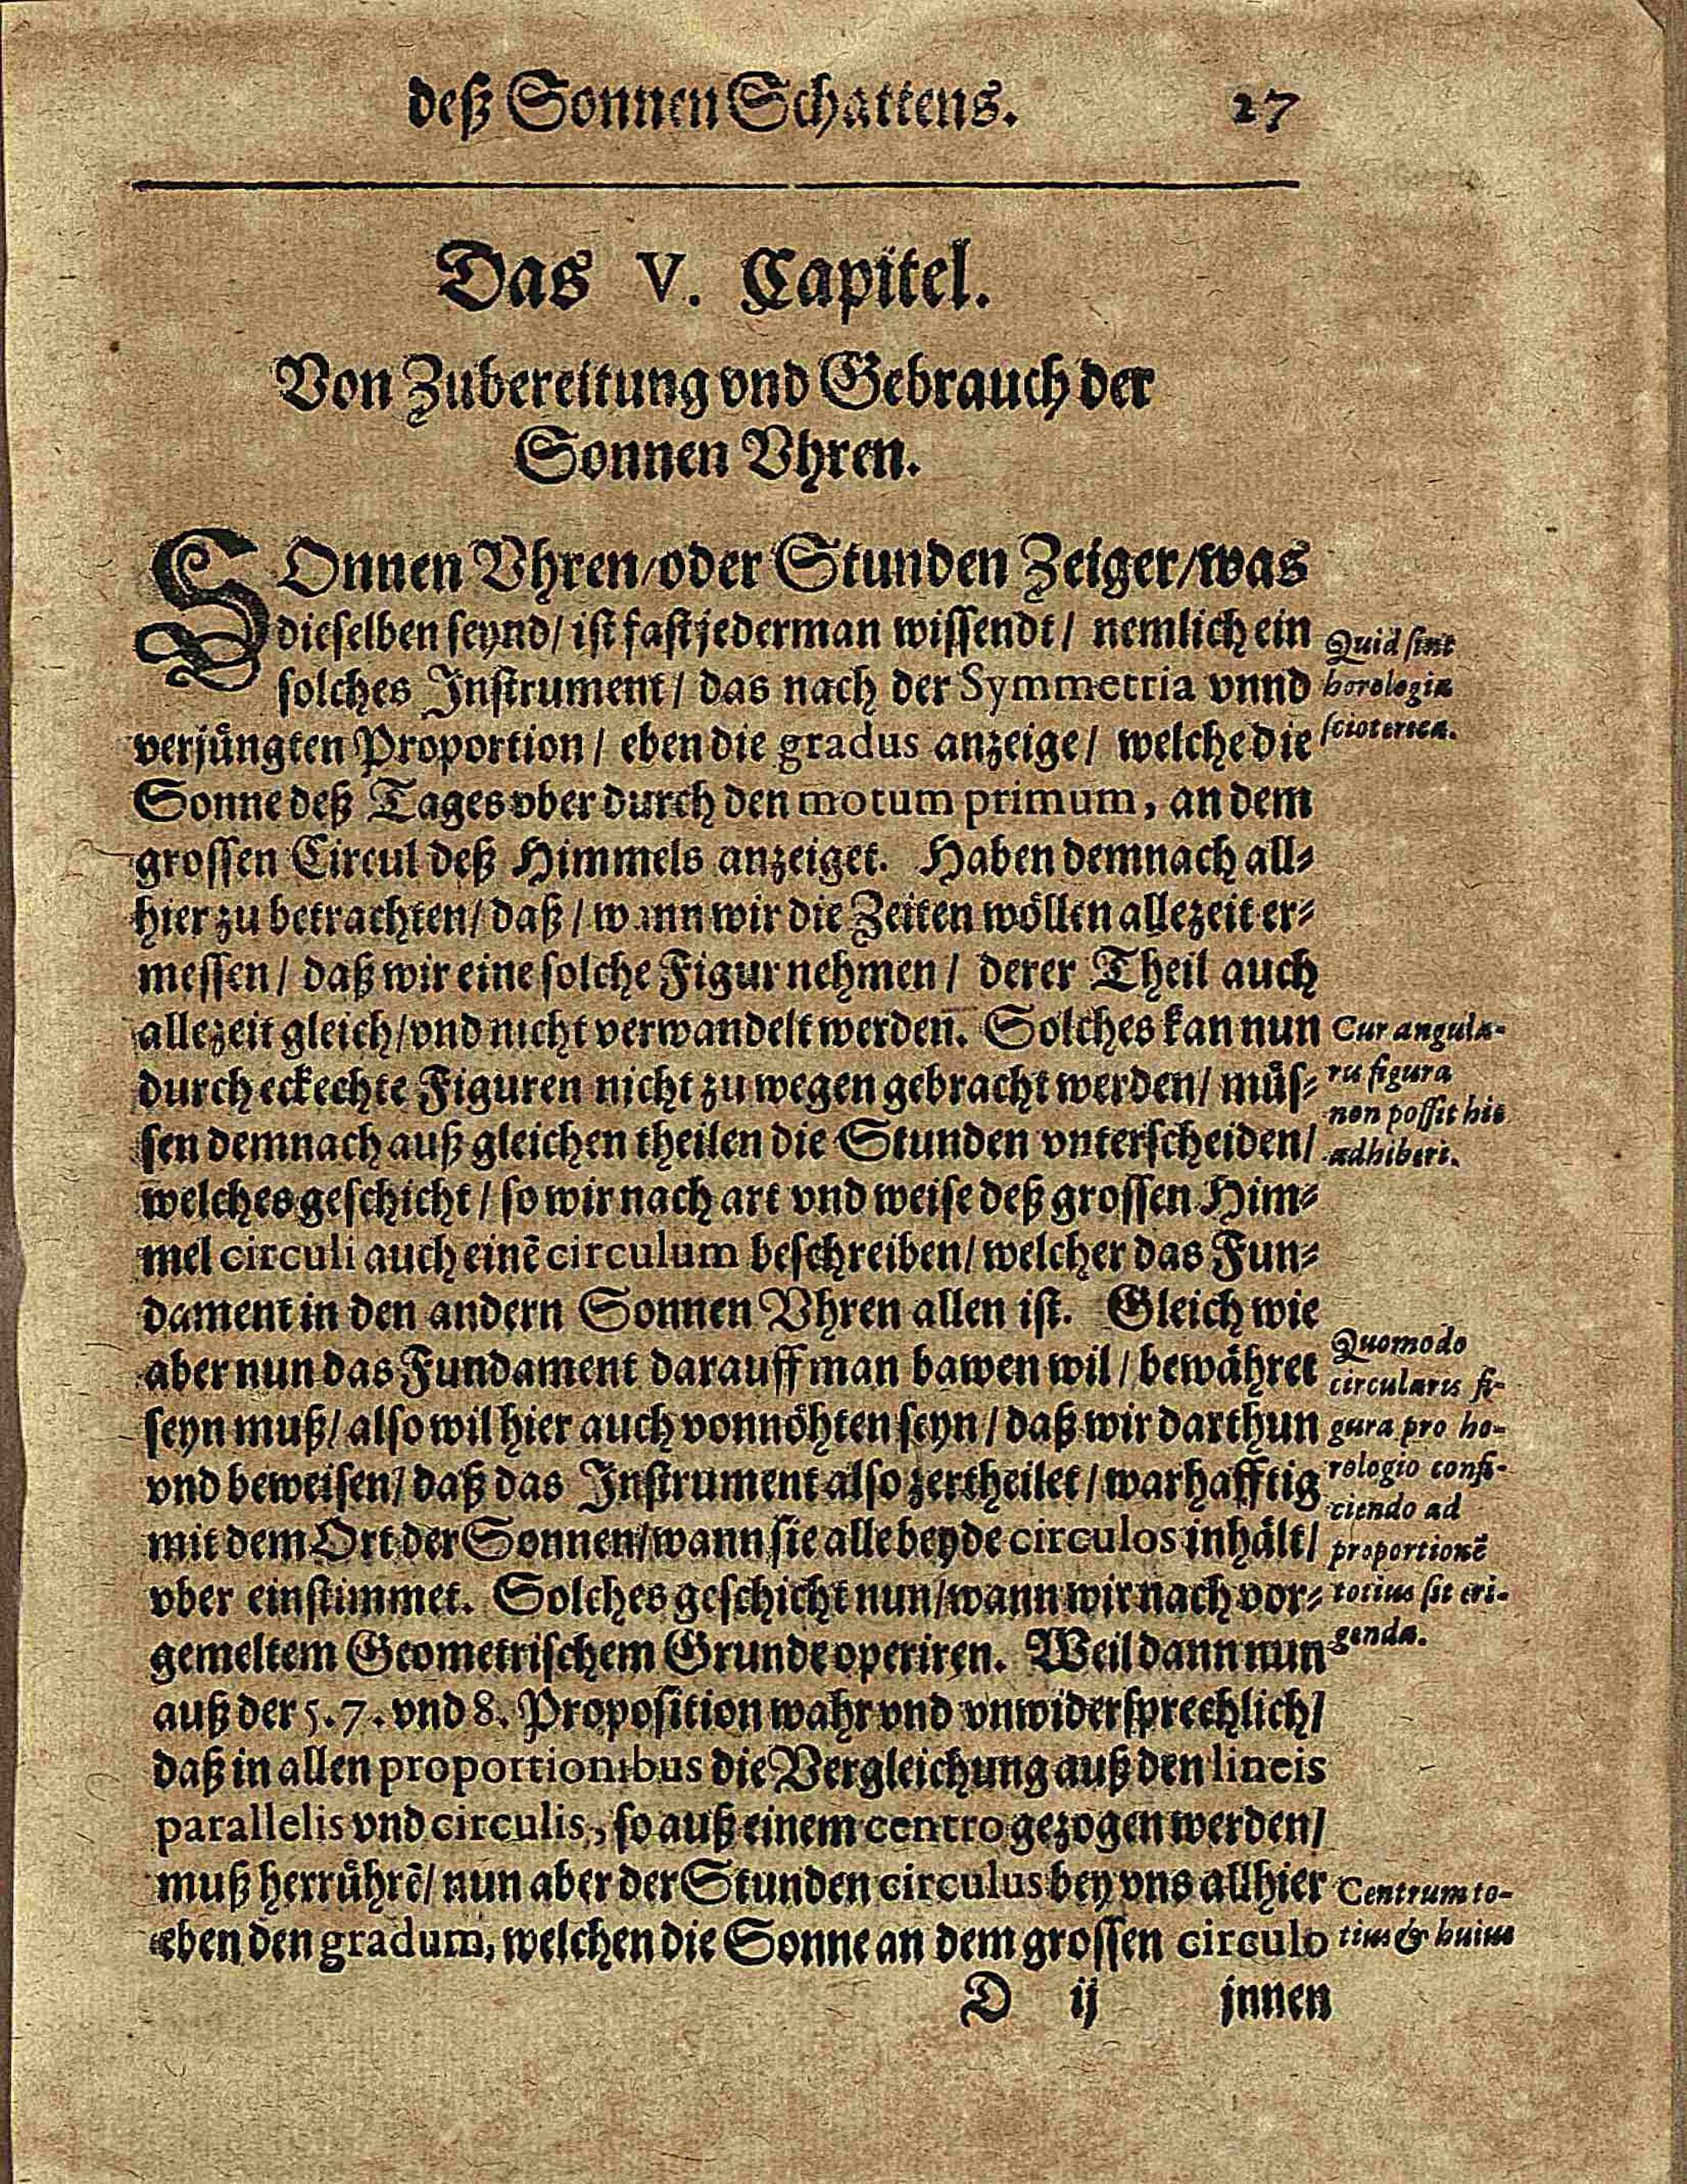 deß Sonnen Schattens. 27
Das V. Capitel.
Von Zubereitung vnd Gebrauch der
Sonnen Vhren.
SOnnen Vhren/oder Stunden Zeiger/was
dieselben seynd/ ist fast jederman wissendt/ nemlich ein
solches Instrument/ das nach der Symmetria vnnd
verjüngten Proportion/ eben die gradus anzeige/ welche die
Sonne deß Tages vber durch den motum primum, an dem
grossen Circul deß Himmels anzeiget. Haben demnach all-
hier zu betrachten/ daß/ wann wir die Zeiten wöllen allezeit er-
messen/ daß wir eine solche Figur nehmen/ derer Theil auch
allezeit gleich/vnd nicht verwandelt werden. Solches kan nun
durch eckechte Figuren nicht zu wegen gebracht werden/ müs-
sen demnach auß gleichen theilen die Stunden vnterscheiden/
welches geschicht/ so wir nach art vnd weise deß grossen Him-
mel circuli auch einē circulum beschreiben/ welcher das Fun-
dament in den andern Sonnen Vhren allen ist. Gleich wie
aber nun das Fundament darauff man bawen wil/ bewähret
seyn muß/ also wil hier auch vonnöhten seyn/ daß wir darthun
vnd beweisen/ daß das Instrument also zertheilet/ warhafftig
mit dem Ort der Sonnen/wann sie alle beyde circulos inhält/
vber einstimmet. Solches geschicht nun/wann wir nach vor-
gemeltem Geometrischem Grunde operiren. Weil dann nun
auß der 5. 7. vnd 8. Proposition wahr vnd vnwidersprechlich/
daß in allen proportionibus die Vergleichung auß den lineis
parallelis vnd circulis, so auß einem centro gezogen werden/
muß herrührē/ nun aber der Stunden circulus bey vns allhier
eben den gradum, welchen die Sonne an dem grossen circulo
D ij jnnen
Quid sint
horologia
scioterica.
Cur angula-
ris figura
non possit hic
adhiberi.
Quomodo
circularis fi-
gura pro ho-
rologio confi-
ciendo ad
proportionē
totius sit eri-
genda.
Centrum to-
tius & huius